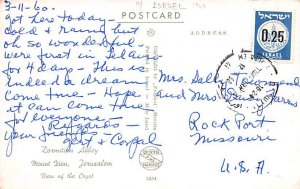 ISRAEL 1960
3-11-60.
POSTCARD
got here today -
cold & raining but
oh so wonderful
were first in
for 4 days - this is
indeed a dream
come true - Hope
it can come true
for everyone -
Regards
your
ADDRESS
ISRAEL
0.25
Mrs. Sally
and Mrs.
Rock Port
Missouri
U.S.A.
Dormition Abbey
Mount Zion, Jerusalem
View of the Crypt